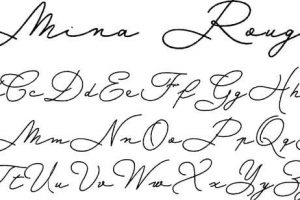 Mina Roug
CcDdEeFfGgH
MmNnOoPpQq
TtUuVvWwXxYy